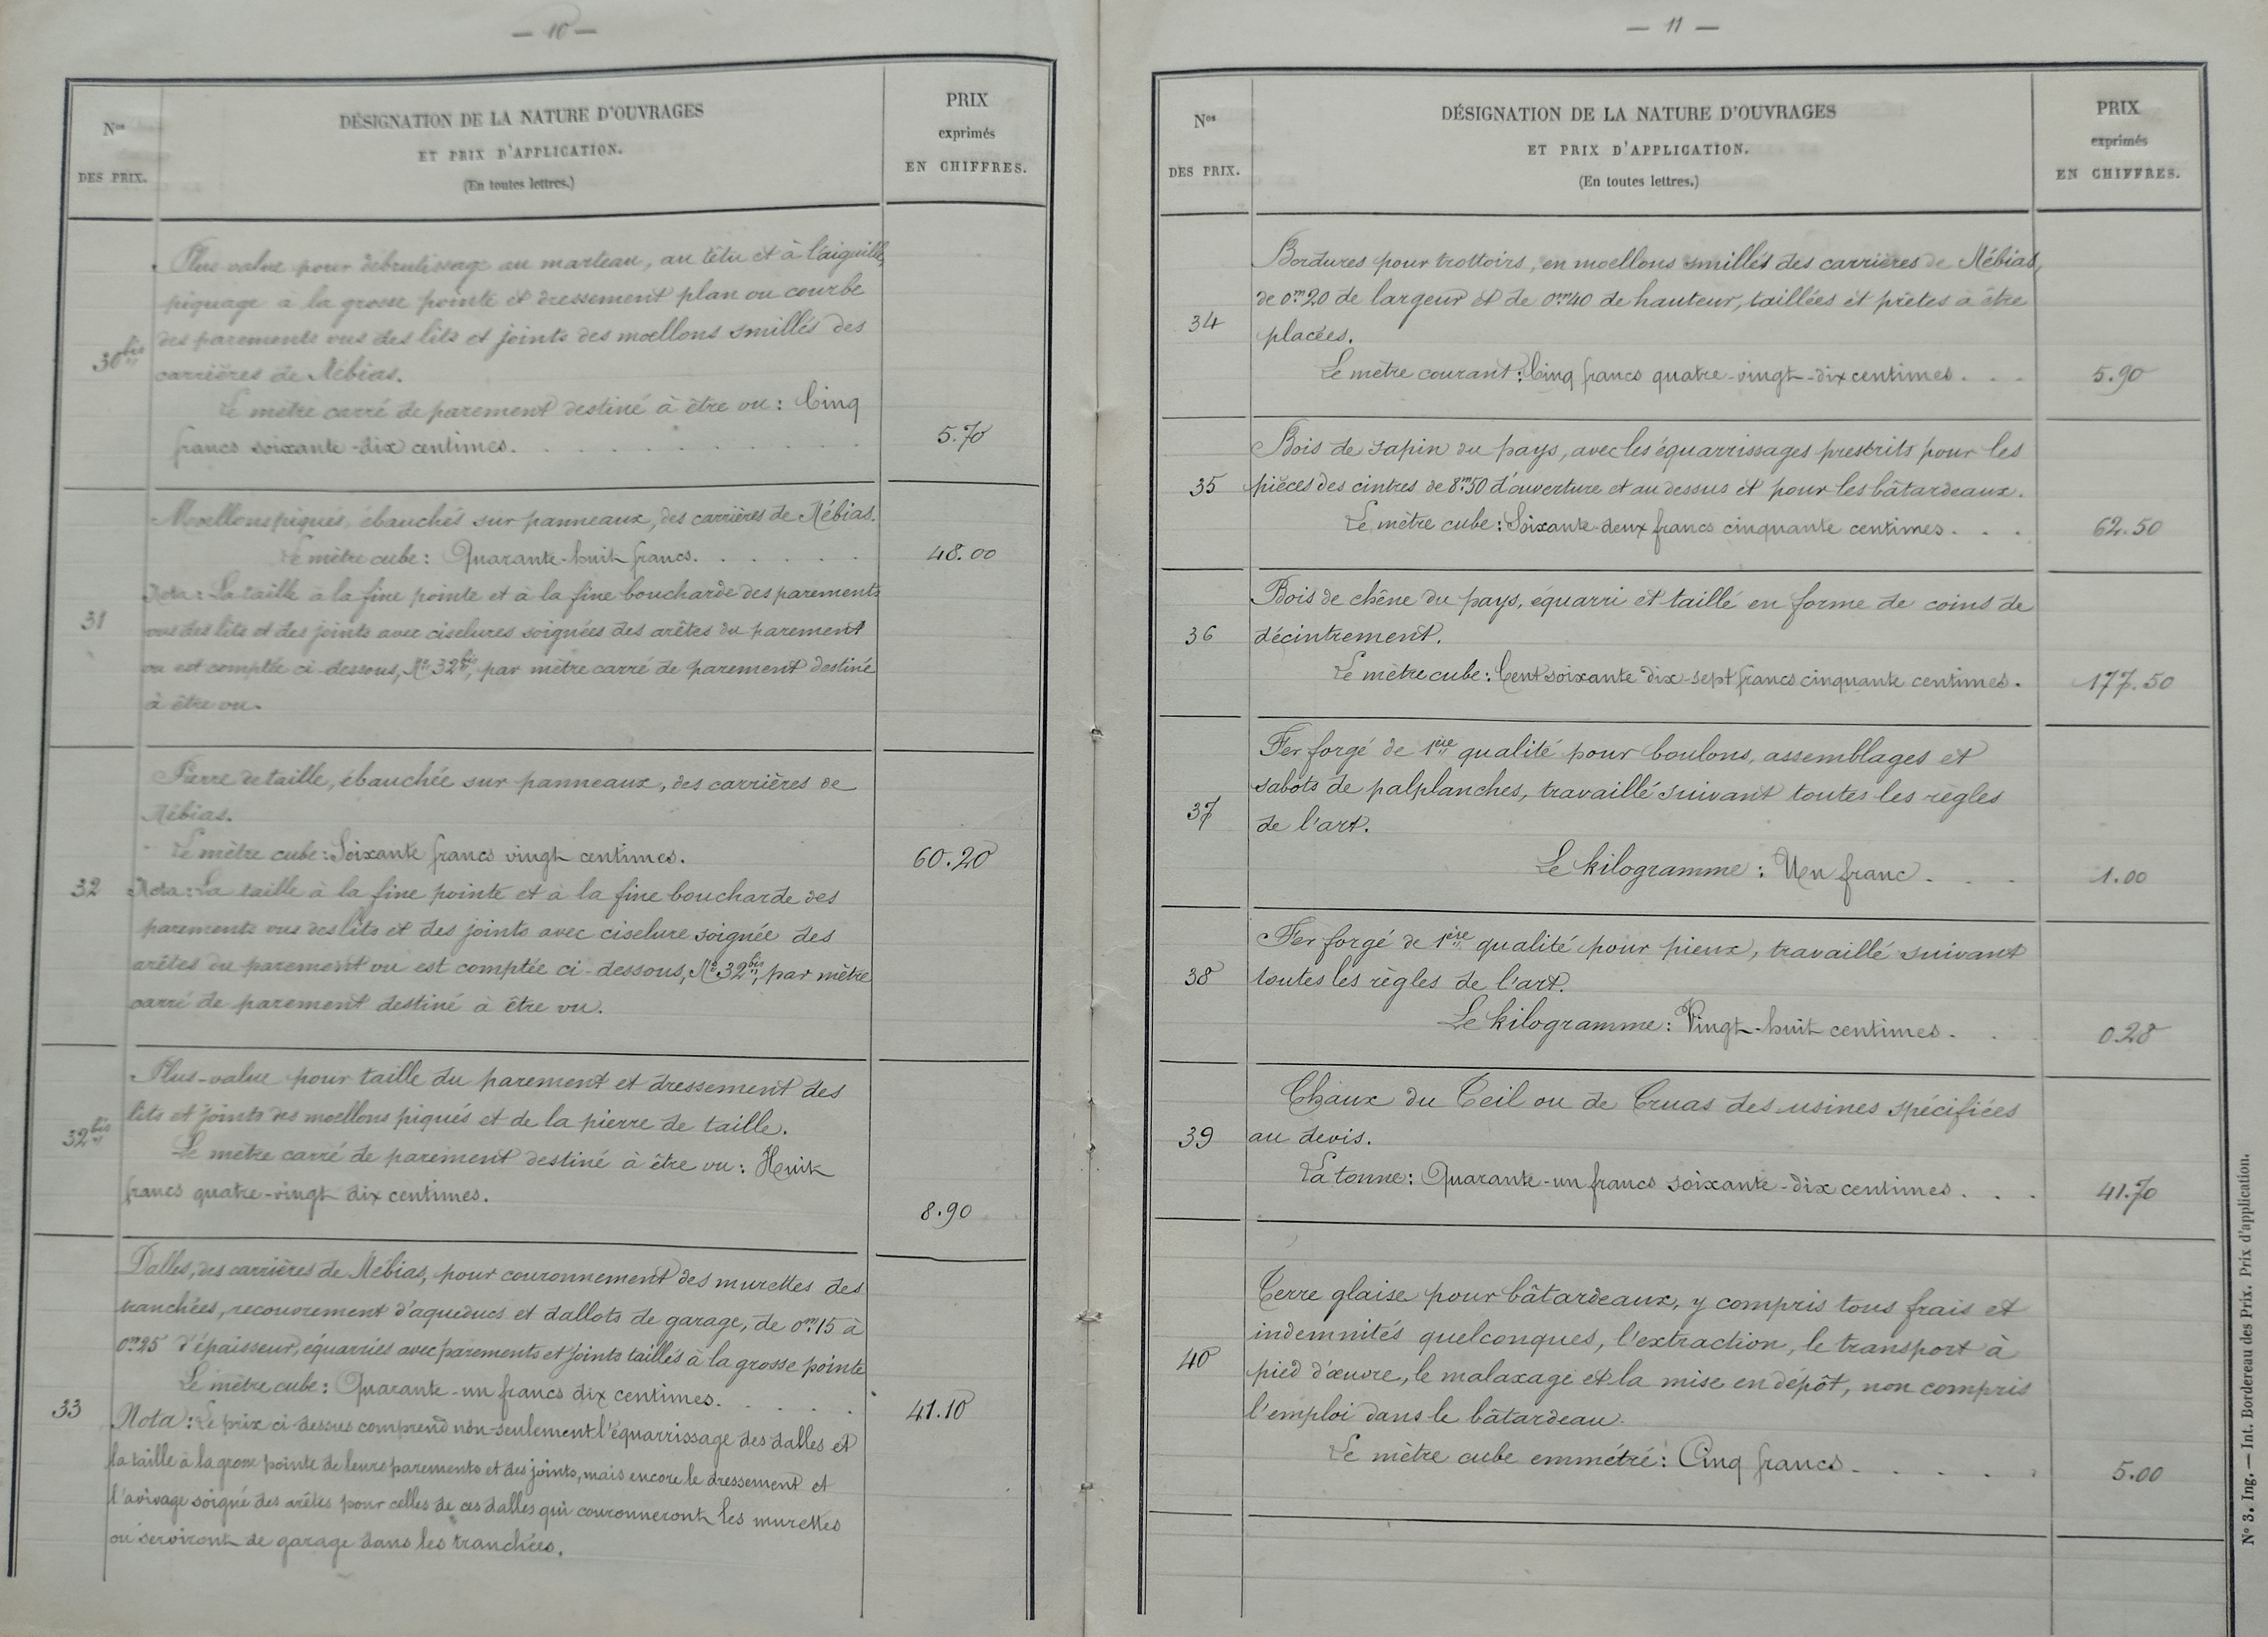 — 10 —
Nos
DES PRIX.
DÉSIGNATION DE LA NATURE D'OUVRAGES
ET PRIX D'APPLICATION.
(En toutes lettres.)
PRIX
exprimés
EN CHIFFRES.
Plus value pour débrutissage au marteau, au têtu et à l'aiguille,
piquage à la grosse pointe et dressement plan ou courbe
des parements vus des lits et joints des moellons smillés des
30 bis
carrières de Nébias.
Le mètre carré de parement destiné à être vu : Cinq
francs soixante-dix centimes. . . . . . . . . .
5.70
Moellons piqués, ébauchés sur panneaux, des carrières de Nébias.
Le mètre cube : Quarante-huit francs. . . . . .
48.00
Nota : La taille à la fine pointe et à la fine boucharde des parements
31
vus des lits et des joints avec ciselures soignées des arêtes du parement
vu est comptée ci-dessous, No 32 bis, par mètre carré de parement destiné
à être vu.
Pierre de taille, ébauchée sur panneaux, des carrières de
Nébias.
Le mètre cube : Soixante francs vingt centimes.
60.20
32
Nota : La taille à la fine pointe et à la fine boucharde des
parements vus des lits et des joints avec ciselure soignée des
arêtes du parement vu est comptée ci-dessous, No 32 bis, par mètre
carré de parement destiné à être vu.
Plus-value pour taille du parement et dressement des
lits et joints des moellons piqués et de la pierre de taille.
32 bis
Le mètre carré de parement destiné à être vu : Huit
francs quatre-vingt dix centimes.
8.90
Dalles, des carrières de Nébias, pour couronnement des murettes des
tranchées, recouvrement d'aqueducs et dallots de garage, de 0m15 à
0m25 d'épaisseur, équarries avec parements et joints taillés à la grosse pointe
Le mètre cube : Quarante-un francs dix centimes. . . . .
41.10
33
Nota : Le prix ci-dessus comprend non-seulement l'équarrissage des dalles et
la taille à la grosse pointe de leurs parements et des joints, mais encore le dressement et
l'avivage soigné des arêtes pour celles de ces dalles qui couronneront les murettes
ou serviront de garage dans les tranchées.
— 11 —
Nos
DES PRIX.
DÉSIGNATION DE LA NATURE D'OUVRAGES
ET PRIX D'APPLICATION.
(En toutes lettres.)
PRIX
exprimés
EN CHIFFRES.
Bordures pour trottoirs, en moellons smillés des carrières de Nébias,
de 0m20 de largeur et de 0m40 de hauteur, taillées et prêtes à être
34
placées.
Le mètre courant : Cinq francs quatre-vingt-dix centimes. . .
5.90
Bois de sapin du pays, avec les équarrissages prescrits pour les
35
pièces des cintres de 8m50 d'ouverture et au dessus et pour les bâtardeaux.
Le mètre cube : Soixante-deux francs cinquante centimes. . .
62.50
Bois de chêne du pays, équarri et taillé en forme de coins de
36
décintrement.
Le mètre cube : Cent soixante dix-sept francs cinquante centimes.
177.50
Fer forgé de 1ère qualité pour boulons, assemblages et
sabots de palplanches, travaillé suivant toutes les règles
37
de l'art.
Le kilogramme : Un franc . . .
1.00
Fer forgé de 1ère qualité pour pieux, travaillé suivant
38
toutes les règles de l'art.
Le kilogramme : Vingt-huit centimes. .
0.28
Chaux du Teil ou de Cruas des usines spécifiées
39
au devis.
La tonne : Quarante-un francs soixante-dix centimes. . .
41.70
Terre glaise pour bâtardeaux, y compris tous frais et
indemnités quelconques, l'extraction, le transport à
40
pied d'œuvre, le malaxage et la mise en dépôt, non compris
l'emploi dans le bâtardeau.
Le mètre cube emmétré : Cinq francs. . . . .
5.00
No 3. Ing. — Int. Bordereau des Prix. Prix d'application.